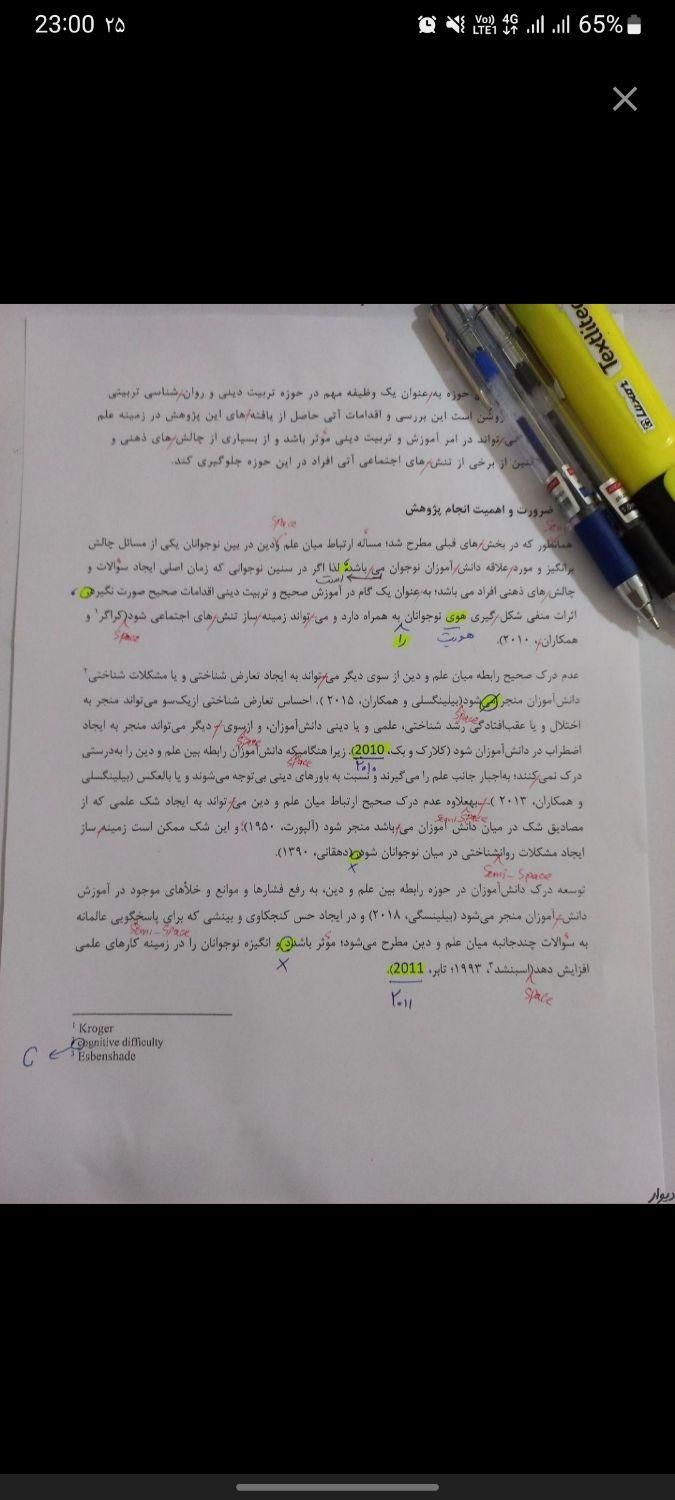 23:00 ۲۵
Vo)) 4G
LTE1
65%
Textliter
Luxor
حوزه به عنوان یک وظیفه مهم در حوزه تربیت دینی و روان شناسی تربیتی
روشن است این بررسی و اقدامات آتی حاصل از یافته های این پژوهش در زمینه علم
می تواند در امر آموزش و تربیت دینی موثر باشد و از بسیاری از چالش های ذهنی و
از برخی از تنش های اجتماعی آتی افراد در این حوزه جلوگیری کند.
ضرورت و اهمیت انجام پژوهش
Space
Semi
همانطور که در بخش های قبلی مطرح شد؛ مسأله ارتباط میان علم ودین در بین نوجوانان یکی از مسائل چالش
برانگیز و مورد علاقه دانش آموزان نوجوان می باشد؛ لذا اگر در سنین نوجوانی که زمان اصلی ایجاد سوالات و
است
چالش های ذهنی افراد می باشد؛ به عنوان یک گام در آموزش صحیح و تربیت دینی اقدامات صحیح صورت نگیرد،
اثرات منفی شکل گیری هوی نوجوانان به همراه دارد و می تواند زمینه ساز تنش های اجتماعی شود(کراگر۱ و
را
هویت
Space
همکاران، ۲۰۱۰).
عدم درک صحیح رابطه میان علم و دین از سوی دیگر می تواند به ایجاد تعارض شناختی و یا مشکلات شناختی۲
دانش آموزان منجر می شود(بیلینگسلی و همکاران، ۲۰۱۵ ). احساس تعارض شناختی ازیک‌سو می‌تواند منجر به
Space
اختلال و یا عقب‌افتادگی رشد شناختی، علمی و یا دینی دانش‌آموزان، و ازسوی دیگر می‌تواند منجر به ایجاد
Space
اضطراب در دانش‌آموزان شود (کلارک و بک، 2010). زیرا هنگامیکه دانش‌آموزان رابطه بین علم و دین را به‌درستی
۲۰۱۰
Space
درک نمی کنند؛ به‌اجبار جانب علم را می‌گیرند و نسبت به باورهای دینی بی‌توجه می‌شوند و یا بالعکس (بیلینگسلی
و همکاران، ۲۰۱۳ ). بهعلاوه عدم درک صحیح ارتباط میان علم و دین می تواند به ایجاد شک علمی که از
Semi-Space
مصادیق شک در میان دانش آموزان می باشد منجر شود (آلپورت، ۱۹۵۰)؛ و این شک ممکن است زمینه ساز
ایجاد مشکلات روانشناختی در میان نوجوانان شود. (دهقانی، ۱۳۹۰).
Semi-Space
X
توسعه درک دانش‌آموزان در حوزه رابطه بین علم و دین، به رفع فشارها و موانع و خلأهای موجود در آموزش
دانش آموزان منجر می‌شود (بیلینسگی، ۲۰۱۸) و در ایجاد حس کنجکاوی و بینشی که برای پاسخگویی عالمانه
Semi-Space
به سوالات چندجانبه میان علم و دین مطرح می‌شود؛ موثر باشدد و انگیزه نوجوانان را در زمینه کارهای علمی
X
افزایش دهد(اسبنشد۳، ۱۹۹۳؛ تابر، 2011).
Space
۲۰۱۱
1 Kroger
2 cognitive difficulty
C
3 Esbenshade
دیوار